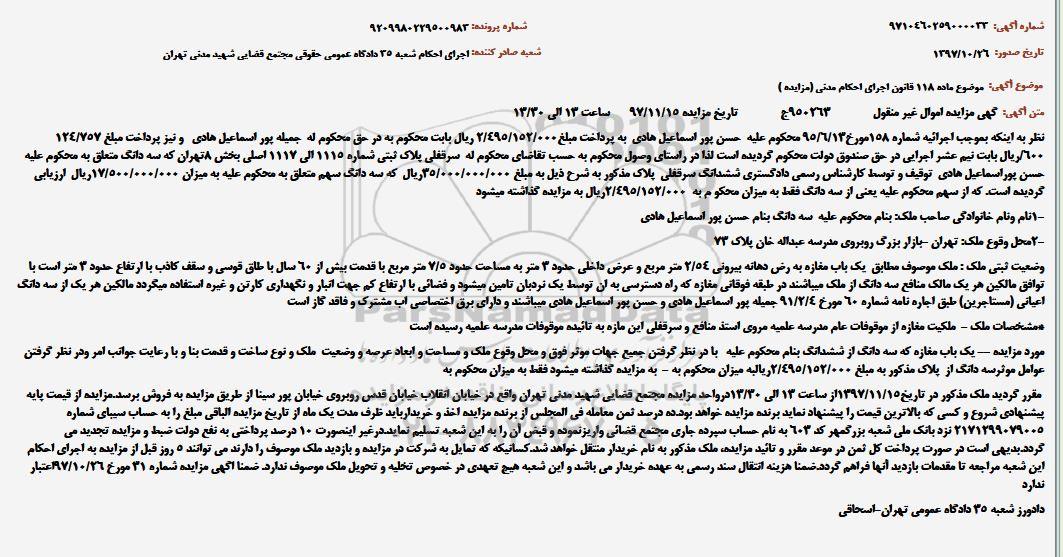 شماره آگهی: ۹۷۱۰۴۶۰۲۵۹۰۰۰۰۳۳ شماره پرونده: ۹۲۰۹۹۸۰۲۲۹۵۰۰۹۸۳
تاریخ صدور: ۱۳۹۷/۱۰/۲۶ شعبه صادر کننده: اجرای احکام شعبه ۳۵ دادگاه عمومی حقوقی مجتمع قضایی شهید مدنی تهران
موضوع آگهی: موضوع ماده ۱۱۸ قانون اجرای احکام مدنی (مزایده )
متن آگهی: گهی مزایده اموال غیر منقول ۹۵۰۰۲۶۳ج تاریخ مزایده ۹۷/۱۱/۱۵ ساعت ۱۳ الی ۱۳/۳۰
نظر به اینکه بموجب اجرائیه شماره ۱۵۸مورخ۹۵/۶/۱۳ محکوم علیه حسن پور اسماعیل هادی به پرداخت مبلغ ۲/۴۹۵/۱۵۲/۰۰۰ ریال بابت محکوم به در حق محکوم له جمیله پور اسماعیل هادی و نیز پرداخت مبلغ ۱۲۴/۷۵۷
/۶۰۰ریال بابت نیم عشر اجرایی در حق صندوق دولت محکوم گردیده است لذا در راستای وصول محکوم به حسب تقاضای محکوم له سرقفلی پلاک ثبتی شماره ۱۱۱۵ الی ۱۱۱۷ اصلی بخش ۸تهران که سه دانگ متعلق به محکوم علیه
حسن پوراسماعیل هادی توقیف و توسط کارشناس رسمی دادگستری ششدانگ سرقفلی پلاک مذکور به شرح ذیل به مبلغ ۳۵/۰۰۰/۰۰۰/۰۰۰ریال که سه دانگ سهم متعلق به محکوم علیه به میزان ۱۷/۵۰۰/۰۰۰/۰۰۰ریال ارزیابی
گردیده است. که از سهم محکوم علیه یعنی از سه دانگ فقط به میزان محکو م به ۲/۴۹۵/۱۵۲/۰۰۰ریال به مزایده گذاشته میشود
-۱نام ونام خانوادگی صاحب ملک: بنام محکوم علیه سه دانگ بنام حسن پور اسماعیل هادی
-۲محل وقوع ملک: تهران -بازار بزرگ روبروی مدرسه عبداله خان پلاک ۷۳
وضعیت ثبتی ملک : ملک موصوف مطابق یک باب مغازه به رض دهانه بیرونی ۲/۵۴ متر مربع و عرض داخلی حدود ۳ متر به مساحت حدود ۷/۵ متر مربع با قدمت بیش از ۶۰ سال با طاق قوسی و سقف کاذب با ارتفاع حدود ۳ متر است با
توافق مالکین هر یک مالک منافع سه دانگ از ملک میباشند در طبقه فوقانی مغازه که راه دسترسی به ان توسط یک نردبان تامین میشود و فضائی با ارتفاع کم جهت انبار و نگهداری کارتن و غیره استفاده میگردد مالکین هر یک از سه دانگ
اعیانی (مستاجرین) طبق اجاره نامه شماره ۶۰ مورخ ۹۱/۲/۴ جمیله پور اسماعیل هادی و حسن پور اسماعیل هادی میباشند و دارای برق اختصاصی اب مشترک و فاقد گاز است
*مشخصات ملک – ملکیت مغازه از موقوفات عام مدرسه علمیه مروی استذ منافع و سرقفلی این مازه به تائیده موقوفات مدرسه علمیه رسیده است
مورد مزایده — یک باب مغازه که سه دانگ از ششدانگ بنام محکوم علیه با در نظر گرفتن جمیع جهات موثر فوق و محل وقوع ملک و مساحت و ابعاد عرصه و وضعیت ملک و نوع ساخت و قدمت بنا و با رعایت جوانب امر ودر نظر گرفتن
عوامل موثرسه دانگ از پلاک مذکور به مبلغ ۲/۴۹۵/۱۵۲/۰۰۰ریالبه میزان محکوم به – به مزایده گذاشته میشود فقط به میزان محکوم به
مقرر گردید ملک مذکور در تاریخ۱۳۹۷/۱۱/۱۵از ساعت ۱۳ الی ۱۳/۳۰درواحد مزایده مجتمع قضایی شهید مدنی تهران واقع در خیابان انقلاب خیابان قدس روبروی خیابان پور سینا از طریق مزایده به فروش برسد.مزایده از قیمت پایه
پیشنهادی شروع و کسی که بالاترین قیمت را پیشنهاد نماید برنده مزایده خواهد بود.ده درصد ثمن معامله فی المجلس از برنده مزایده اخذ و خریدارباید ظرف مدت یک ماه از تاریخ مزایده الباقی مبلغ را به حساب سیبای شماره
۲۱۷۱۲۹۹۰۷۹۰۰۵ نزد بانک ملی شعبه بزرگمهر کد ۶۰۳ به نام حساب سپرده جاری مجتمع قضائی واریزنموده و قبض آن را به این شعبه تسلیم نماید.درغیر اینصورت ۱۰ درصد پرداختی به نفع دولت ضبط و مزایده تجدید می
گردد.بدیهی است در صورت پرداخت کل ثمن در موعد مقرر و تائید مزایده، ملک مذکور به نام خریدار منتقل خواهد شد.کسانیکه که تمایل به شرکت در مزایده و بازدید ملک موصوف را دارند می توانند ۵ روز قبل از مزایده به اجرای احکام
این شعبه مراجعه تا مقدمات بازدید آنها فراهم گردد.ضمنا هزینه انتقال سند رسمی به عهده خریدار می باشد و این شعبه هیچ تعهدی در خصوص تخلیه و تحویل ملک موصوف ندارد. ضمنا اگهی مزایده شماره ۳۱ مورخ ۹۷/۱۰/۲۶اعتبار
ندارد
دادورز شعبه ۳۵ دادگاه عمومی تهران-اسحاقی
ParsNamadData